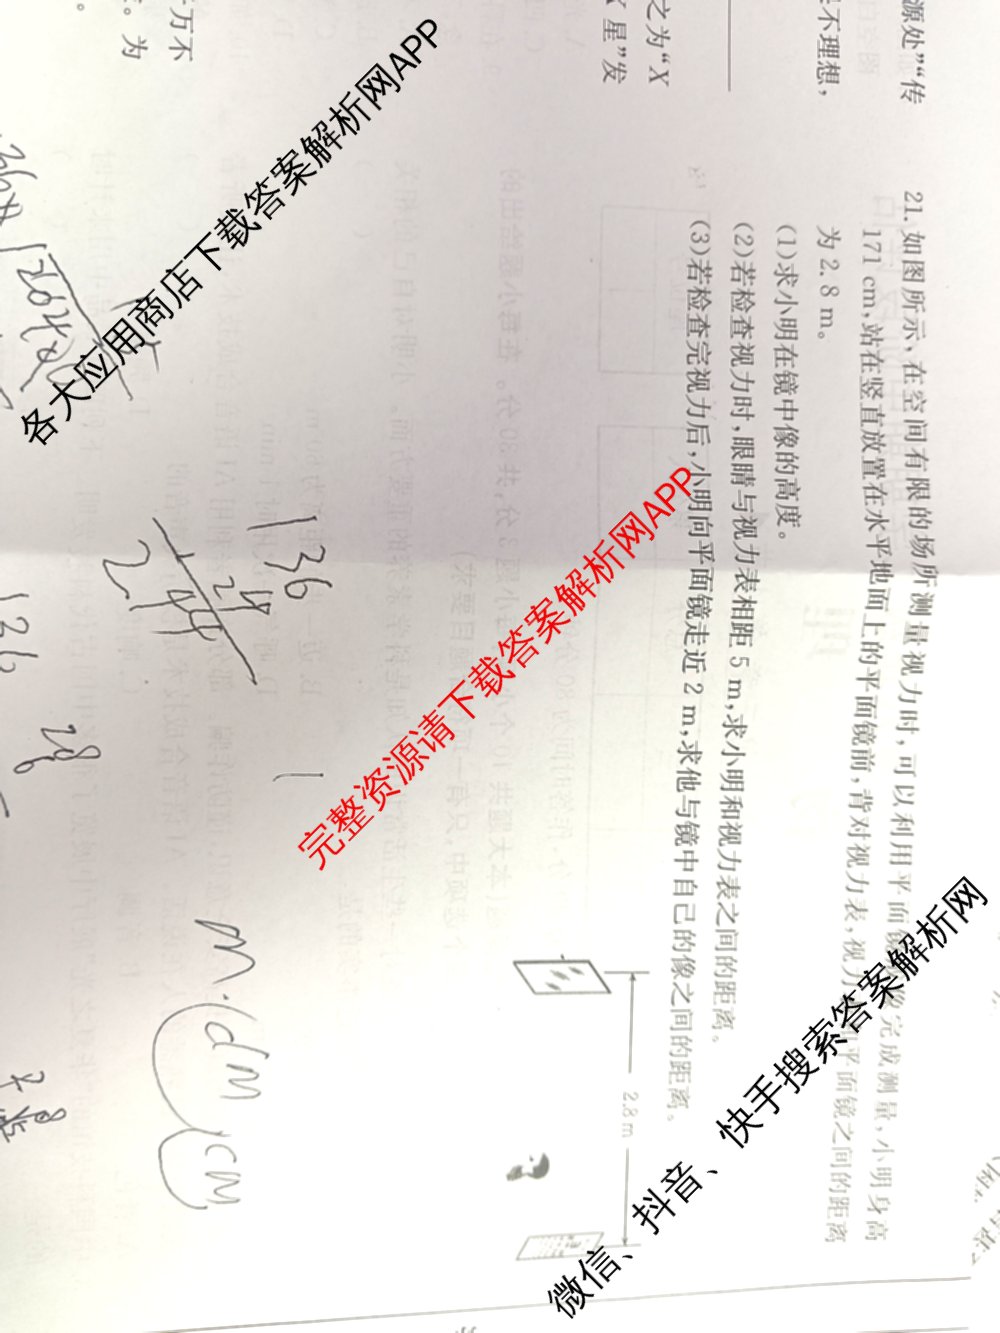 源处”“传
不理想，
之为“X
星”发
万不
。为
21. 如图所示，在空间有限的场所测量视力时，可以利用平面镜成像完成测量，小明身高
171 cm，站在竖直放置在水平地面上的平面镜前，背对视力表，视力表和平面镜之间的距离
为 2.8 m。
(1)求小明在镜中像的高度。
(2)若检查视力时，眼睛与视力表相距 5 m，求小明和视力表之间的距离。
(3)若检查完视力后，小明向平面镜走近 2 m，求他与镜中自己的像之间的距离。
2.8 m
136
24
244
136
28
m.(dm,cm
各大应用商店下载答案解析网APP
完整资源请下载答案解析网APP
微信、抖音、快手搜索答案解析网